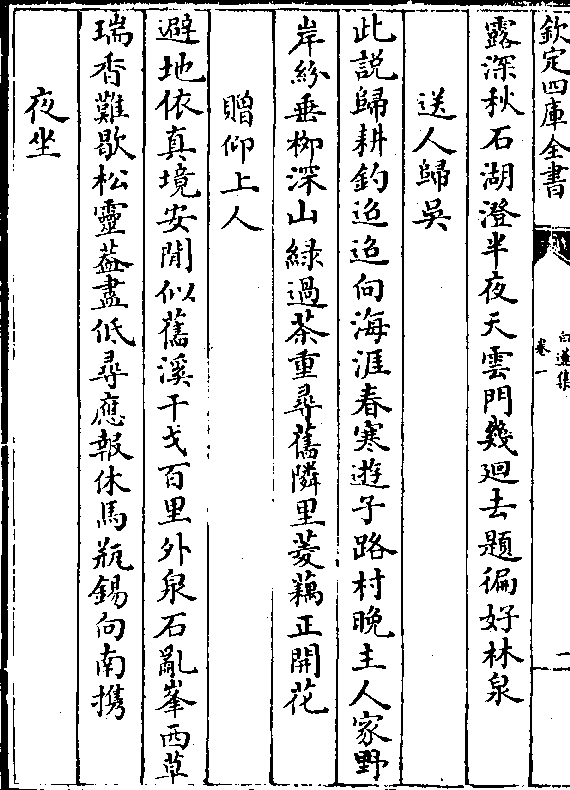 欽定四庫全書
白蓮集
卷一
二
露深秋石湖澄半夜天雲門幾迴去題徧好林泉
送人歸吳
此説歸耕釣迢迢向海涯春寒遊子路村晚主人家野
岸紛垂栁深山緑過茶重尋舊隣里菱藕正開花
贈仰上人
避地依真境安閒似舊溪干戈百里外泉石亂峯西草
瑞香難歇松靈葢盡低尋應報休馬瓶錫向南携
夜坐